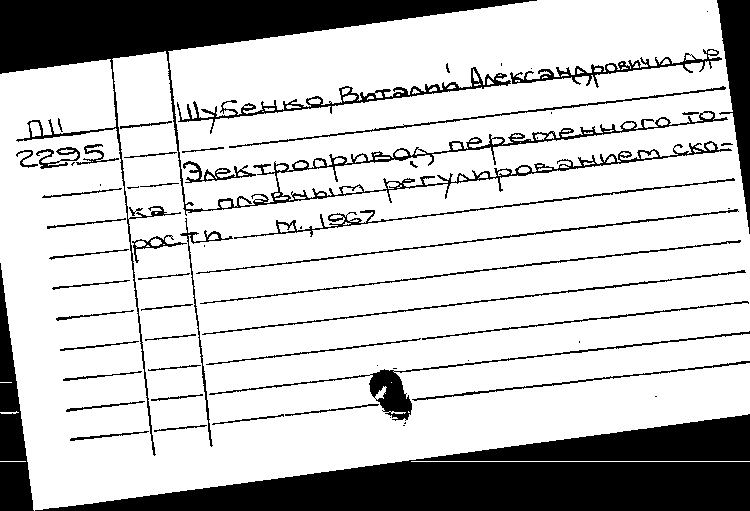 Шубенко, Виталий Александрович и др
П11
2295
Электропривод переменного то=
ка с плавным регулированием ско=
рости. М., 1967.